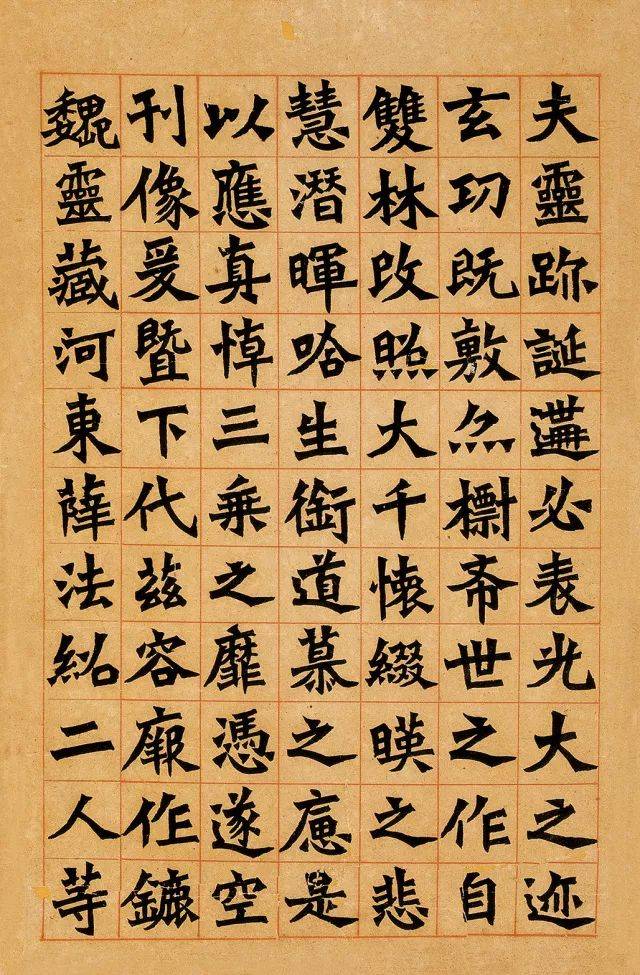 夫靈跡誕遘必表光大之迹
玄功既敷亦標希世之作自
雙林改照大千懷綴暎之悲
慧潛暉唅生銜道慕之痛是
以應真悼三乘之靡憑遂空
刊像爰暨下代茲容厥作鏕
魏靈藏河東薛法紹二人等